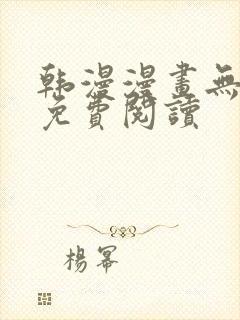 韩漫漫畫無
免費閱讀
楊冪